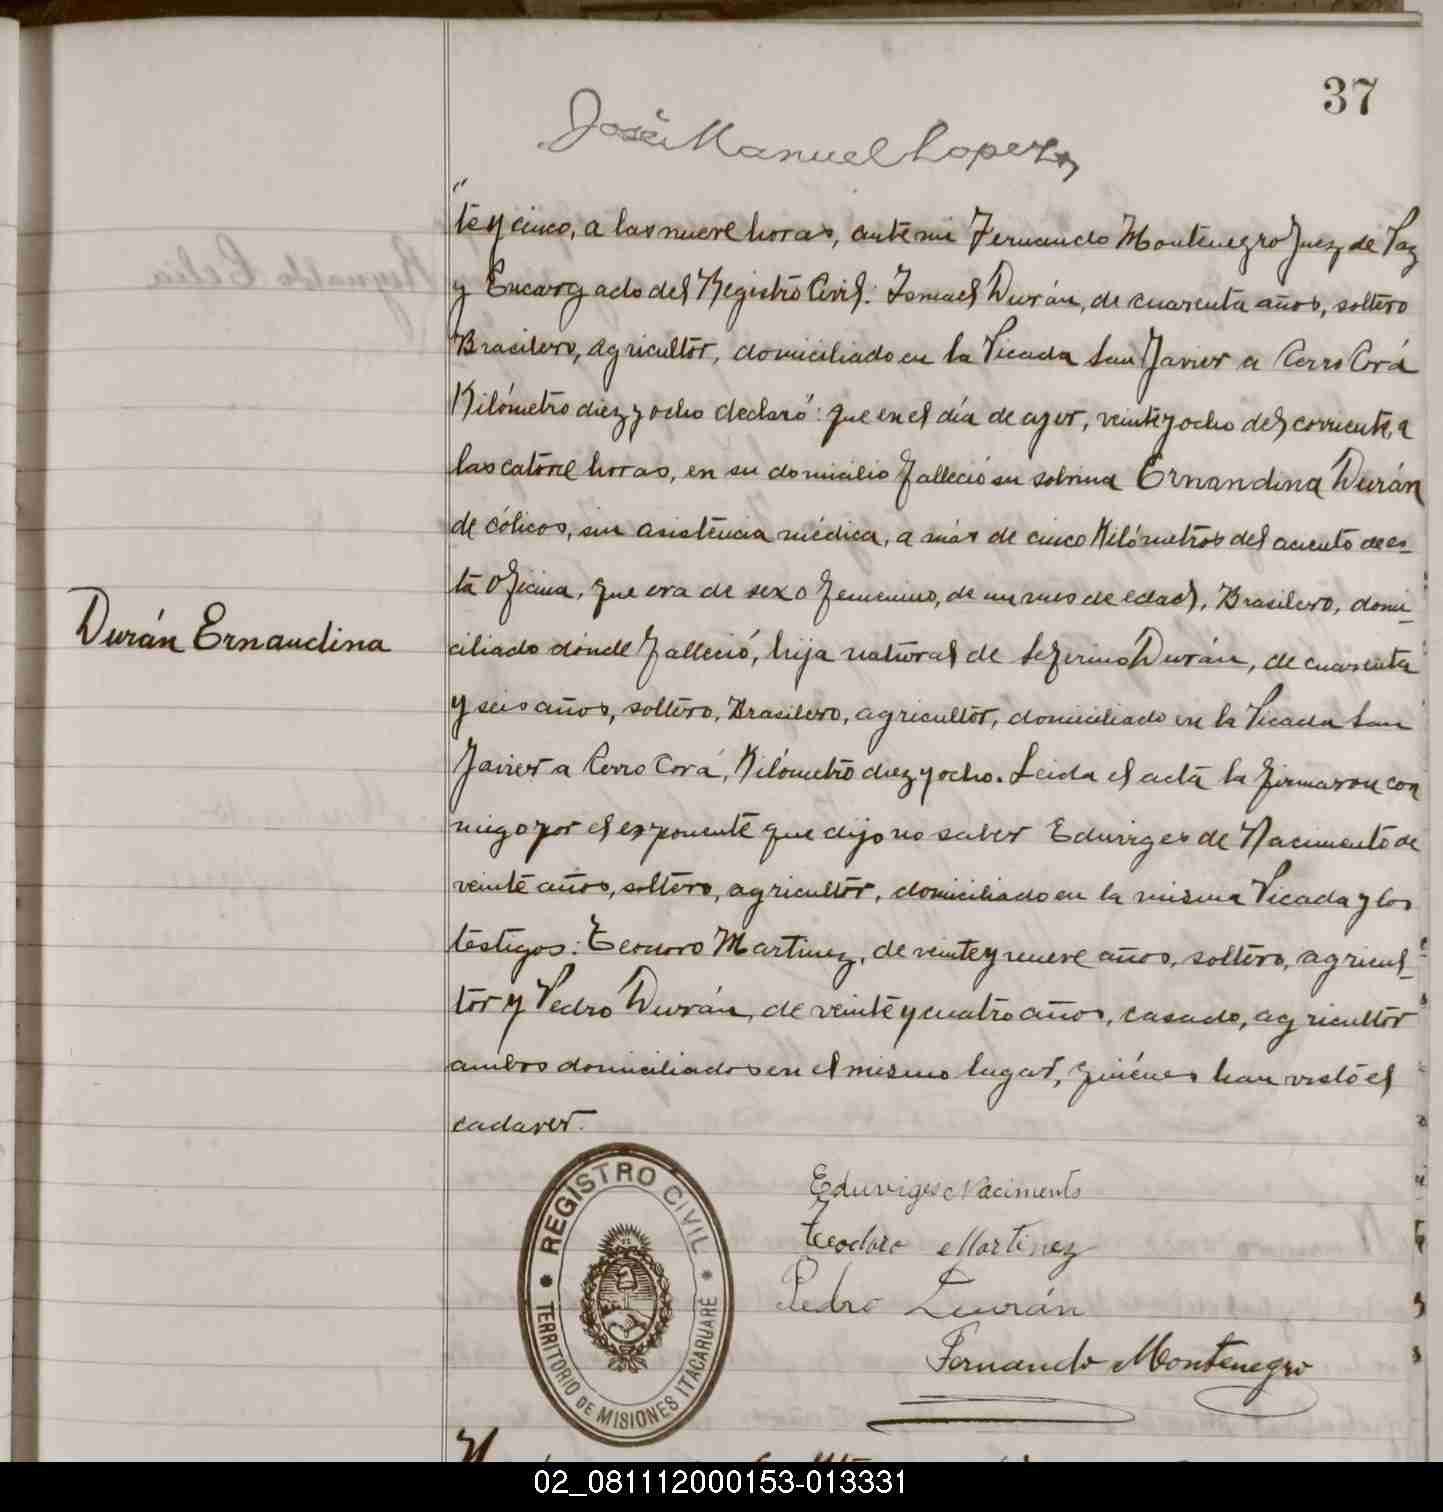 37
José Manuel Lopez
"te y cinco, a las nueve horas, ante mi Fernando Montenegro Juez de Paz
y Encargado del Registro Civil: Ismael Durán, de cuarenta años, soltero
Brasilero, agricultor, domiciliado en la Picada San Javier a Cerro Corá
Kilómetro diez y ocho declaró: que en el día de ayer, veinte y ocho del corriente, a
las catorce horas, en su domicilio falleció su sobrina Ernandina Durán
de cólicos, sin asistencia médica, a más de cinco Kilómetros del aciento de es-
ta oficina, que era de sexo femenino, de un mes de edad, Brasilero, domi-
Durán Ernandina
ciliado dónde falleció, hija natural de Seferino Durán, de cuarenta
y seis años, soltero, Brasilero, agricultor, domiciliado en la Picada San
Javier a Cerro Corá, Kilómetro diez y ocho. Leida el acta la firmaron con
migo por el esponente que dijo no saber Eduviges de Nacimento de
veinte años, soltero, agricultor, domiciliado en la misma Picada y los
testigos: Teodoro Martinez, de veinte y nueve años, soltero, agricul-
tor y Pedro Durán, de veinte y cuatro años, casado, agricultor
ambos domiciliados en el mismo lugar, quiénes han visto el
cadaver.
Eduviges Nacimento
Teodoro Martinez
Pedro Durán
Fernando Montenegro
REGISTRO CIVIL
TERRITORIO DE MISIONES ITACARUARÉ
02_081112000153-013331